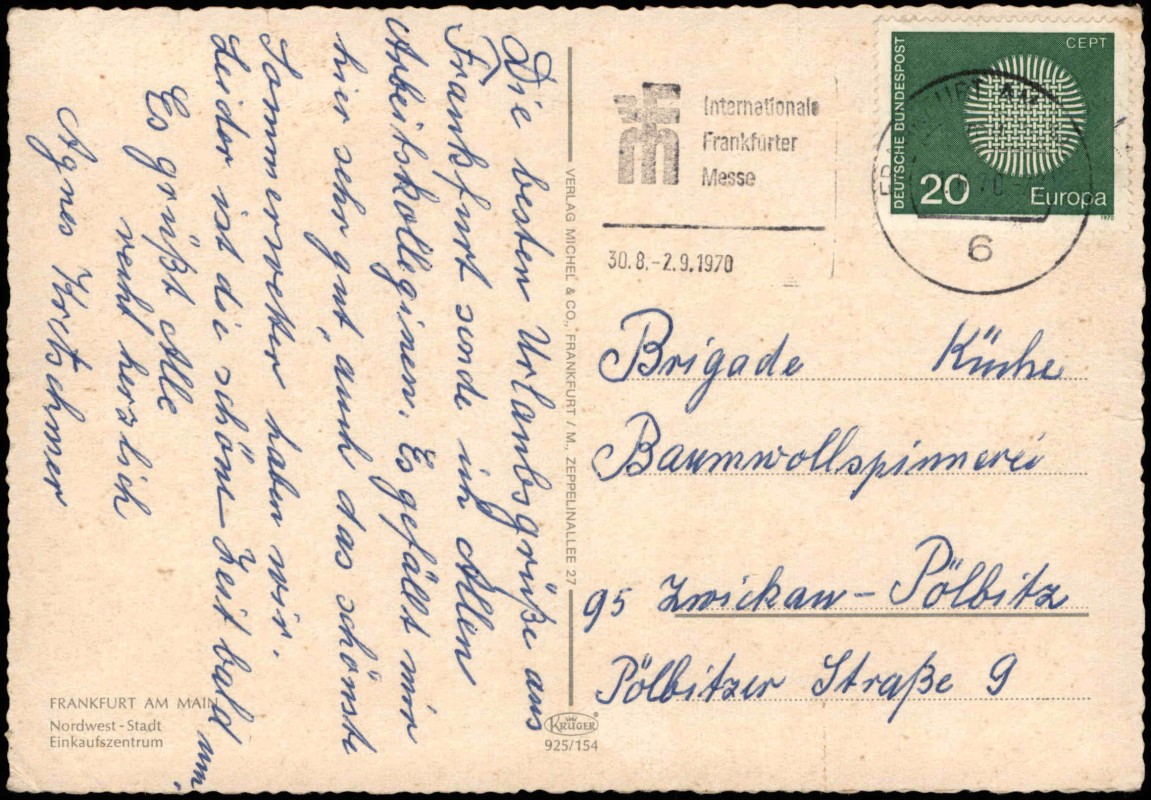 Die besten Urlaubsgrüße aus
Frankfurt sende ich Allen
Arbeitskolleginen. Es gefällt mir
hier sehr gut, auch das schönste
Sommerwetter haben wir.
Leider ist die schöne Zeit bald um.
Es grüßt Alle
recht herzlich
Agnes Kretschmer
FRANKFURT AM MAIN
Nordwest-Stadt
Einkaufszentrum
VERLAG MICHEL & CO., FRANKFURT / M., ZEPPELINALLEE 27
KRÜGER
925/154
Internationale
Frankfurter
Messe
30.8.-2.9.1970
DEUTSCHE BUNDESPOST
CEPT
20
Europa
1970
6
Brigade Küche
Baumwollspinnerei
95 Zwickau-Pölbitz
Pölbitzer Straße 9